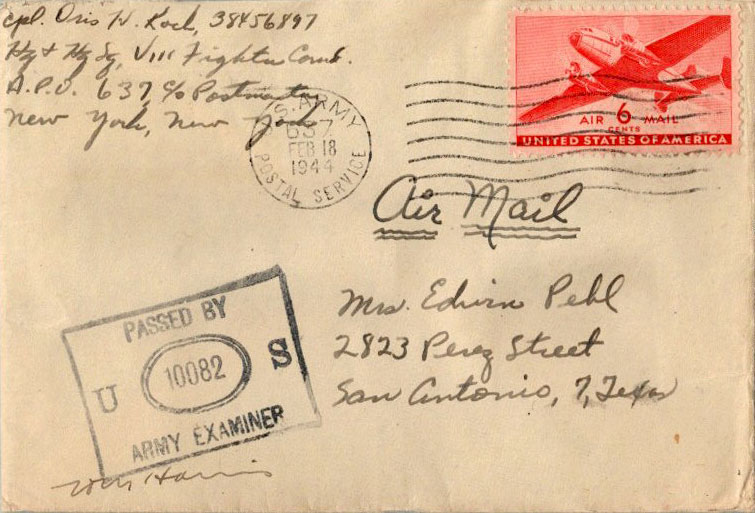 Cpl. Oris H. Koch, 38456897
Hq + Hq Sq, VIII Fighter Com'd.
A.P.O. 637, c/o Postmaster
New York, New York
U.S. ARMY
637
FEB 18
1944
POSTAL SERVICE
AIR 6 MAIL
CENTS
UNITED STATES OF AMERICA
Air Mail
Mrs. Edwin Pehl
2823 Perez Street
San Antonio, 7, Texas
PASSED BY
U 10082 S
ARMY EXAMINER
Harris